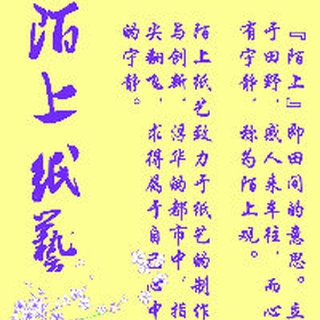 陌上纸藝
『陌上』即田间的意思。立
于田野，感人来车往，而心
有宁静，称为陌上观。
陌上纸艺致力于纸艺的制作
与创新，浮华的都市中，指
尖翻飞，求得属于自己心中
的宁静。